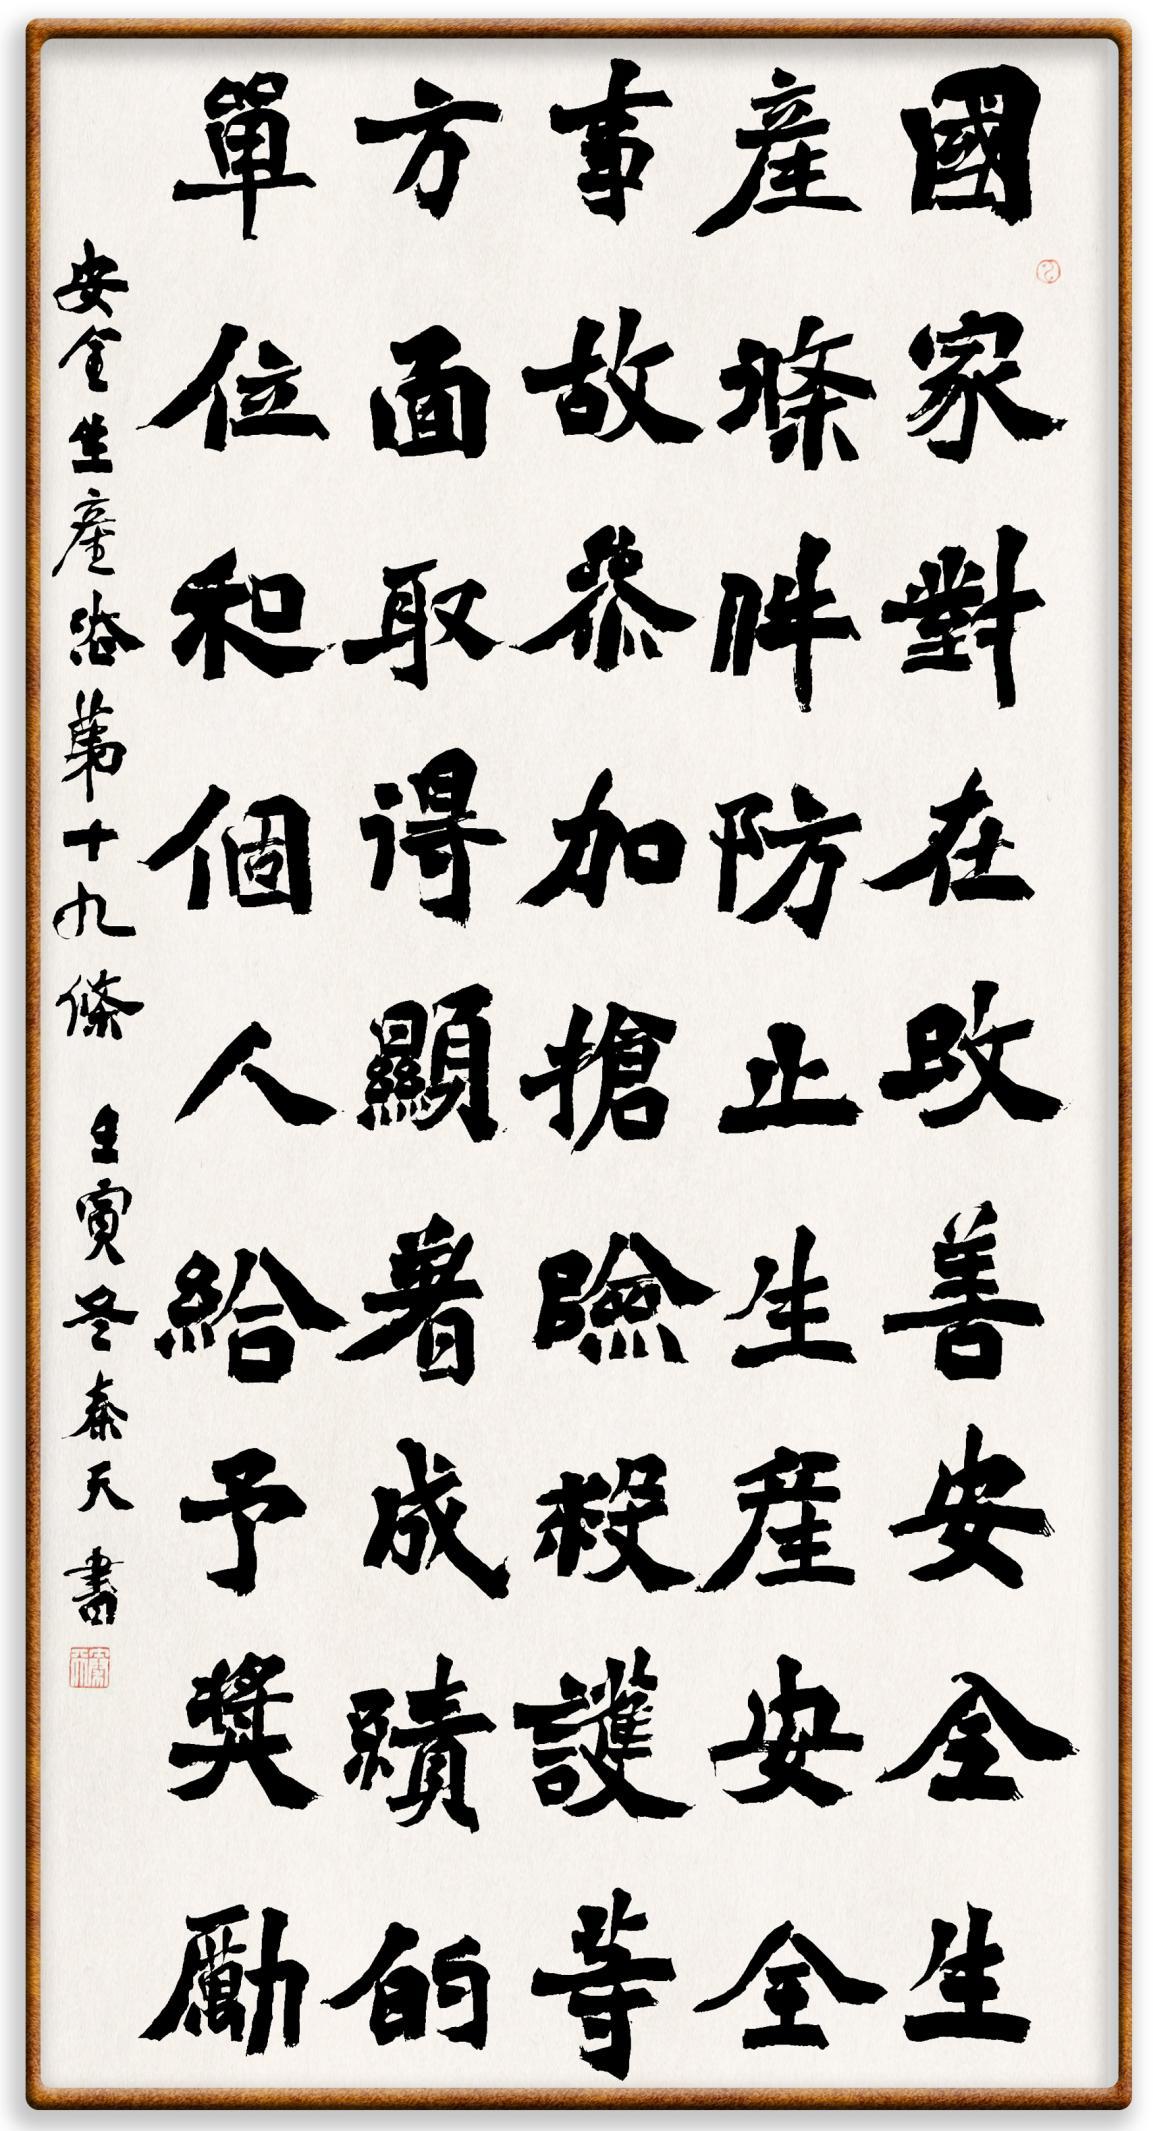 國家對在改善安全生
產條件防止生產安全
事故參加搶險救護等
方面取得顯著成績的
單位和個人給予獎勵
安全生產法第十九條 壬寅冬秦天書
秦天